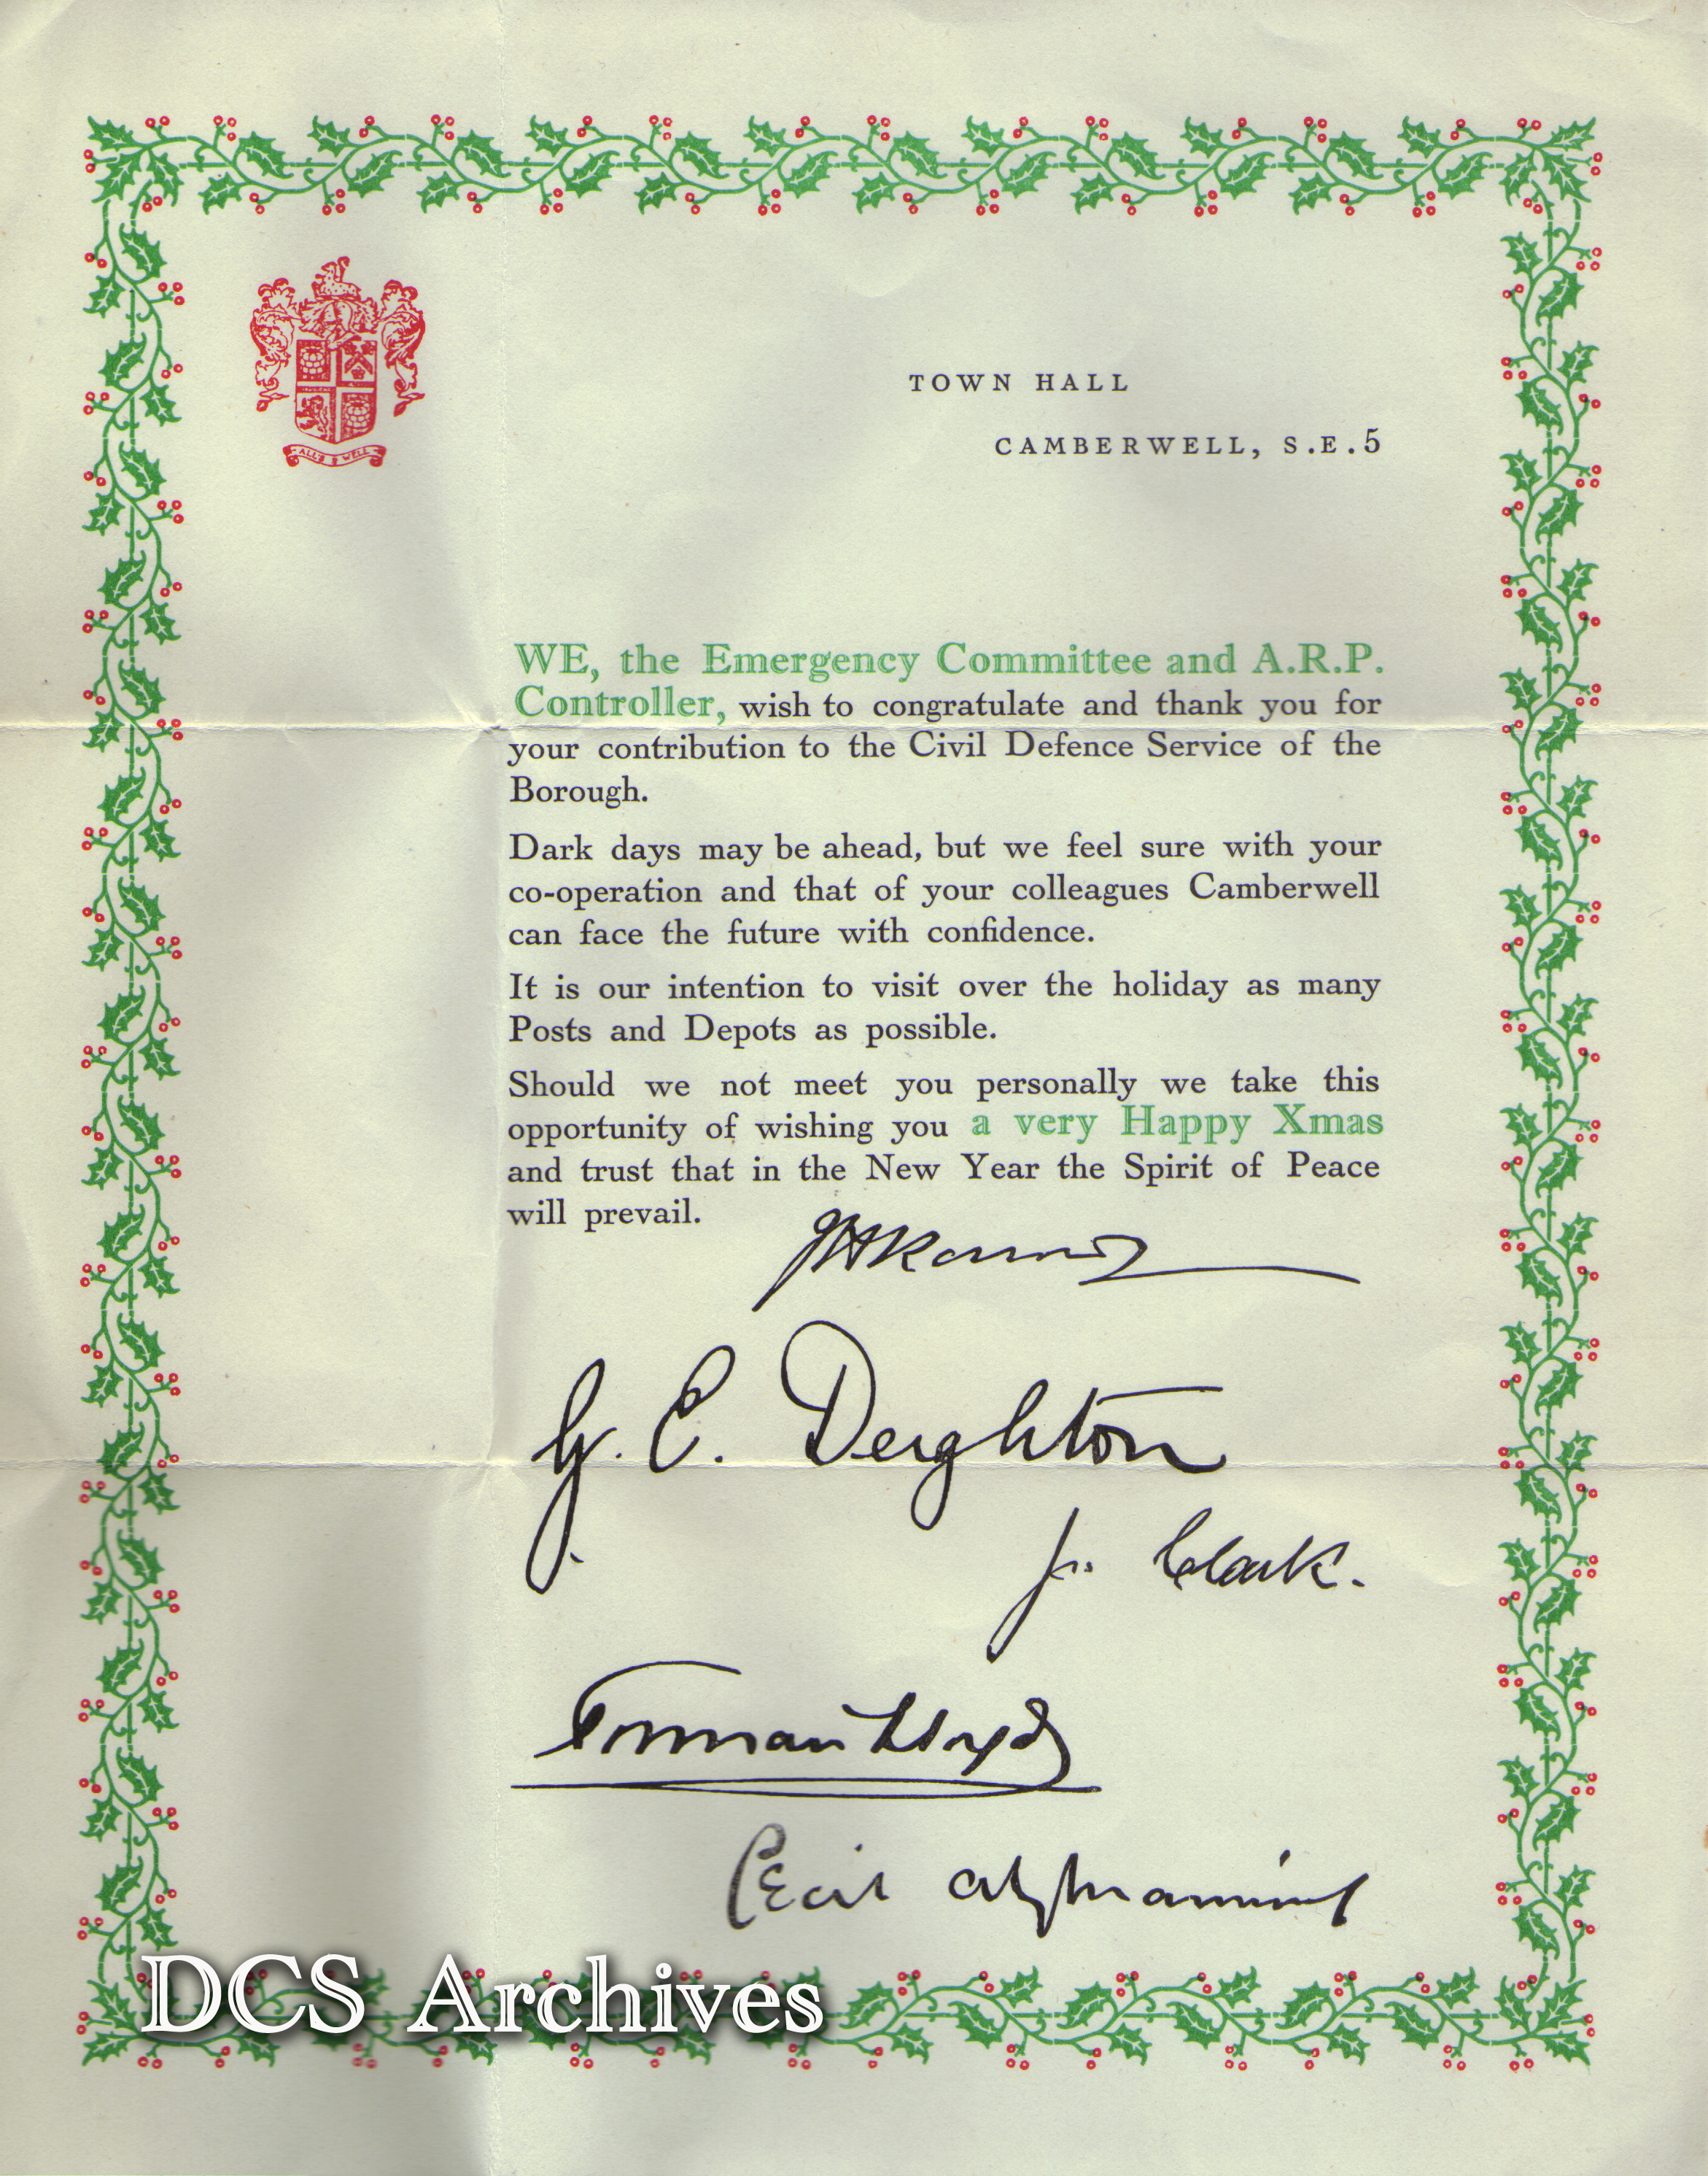 ALL'S WELL
TOWN HALL
CAMBERWELL, S.E.5
WE, the Emergency Committee and A.R.P.
Controller, wish to congratulate and thank you for
your contribution to the Civil Defence Service of the
Borough.
Dark days may be ahead, but we feel sure with your
co-operation and that of your colleagues Camberwell
can face the future with confidence.
It is our intention to visit over the holiday as many
Posts and Depots as possible.
Should we not meet you personally we take this
opportunity of wishing you a very Happy Xmas
and trust that in the New Year the Spirit of Peace
will prevail.
G. C. Deighton
J. Clark.
Lloyd
Cecil Manning
DCS Archives